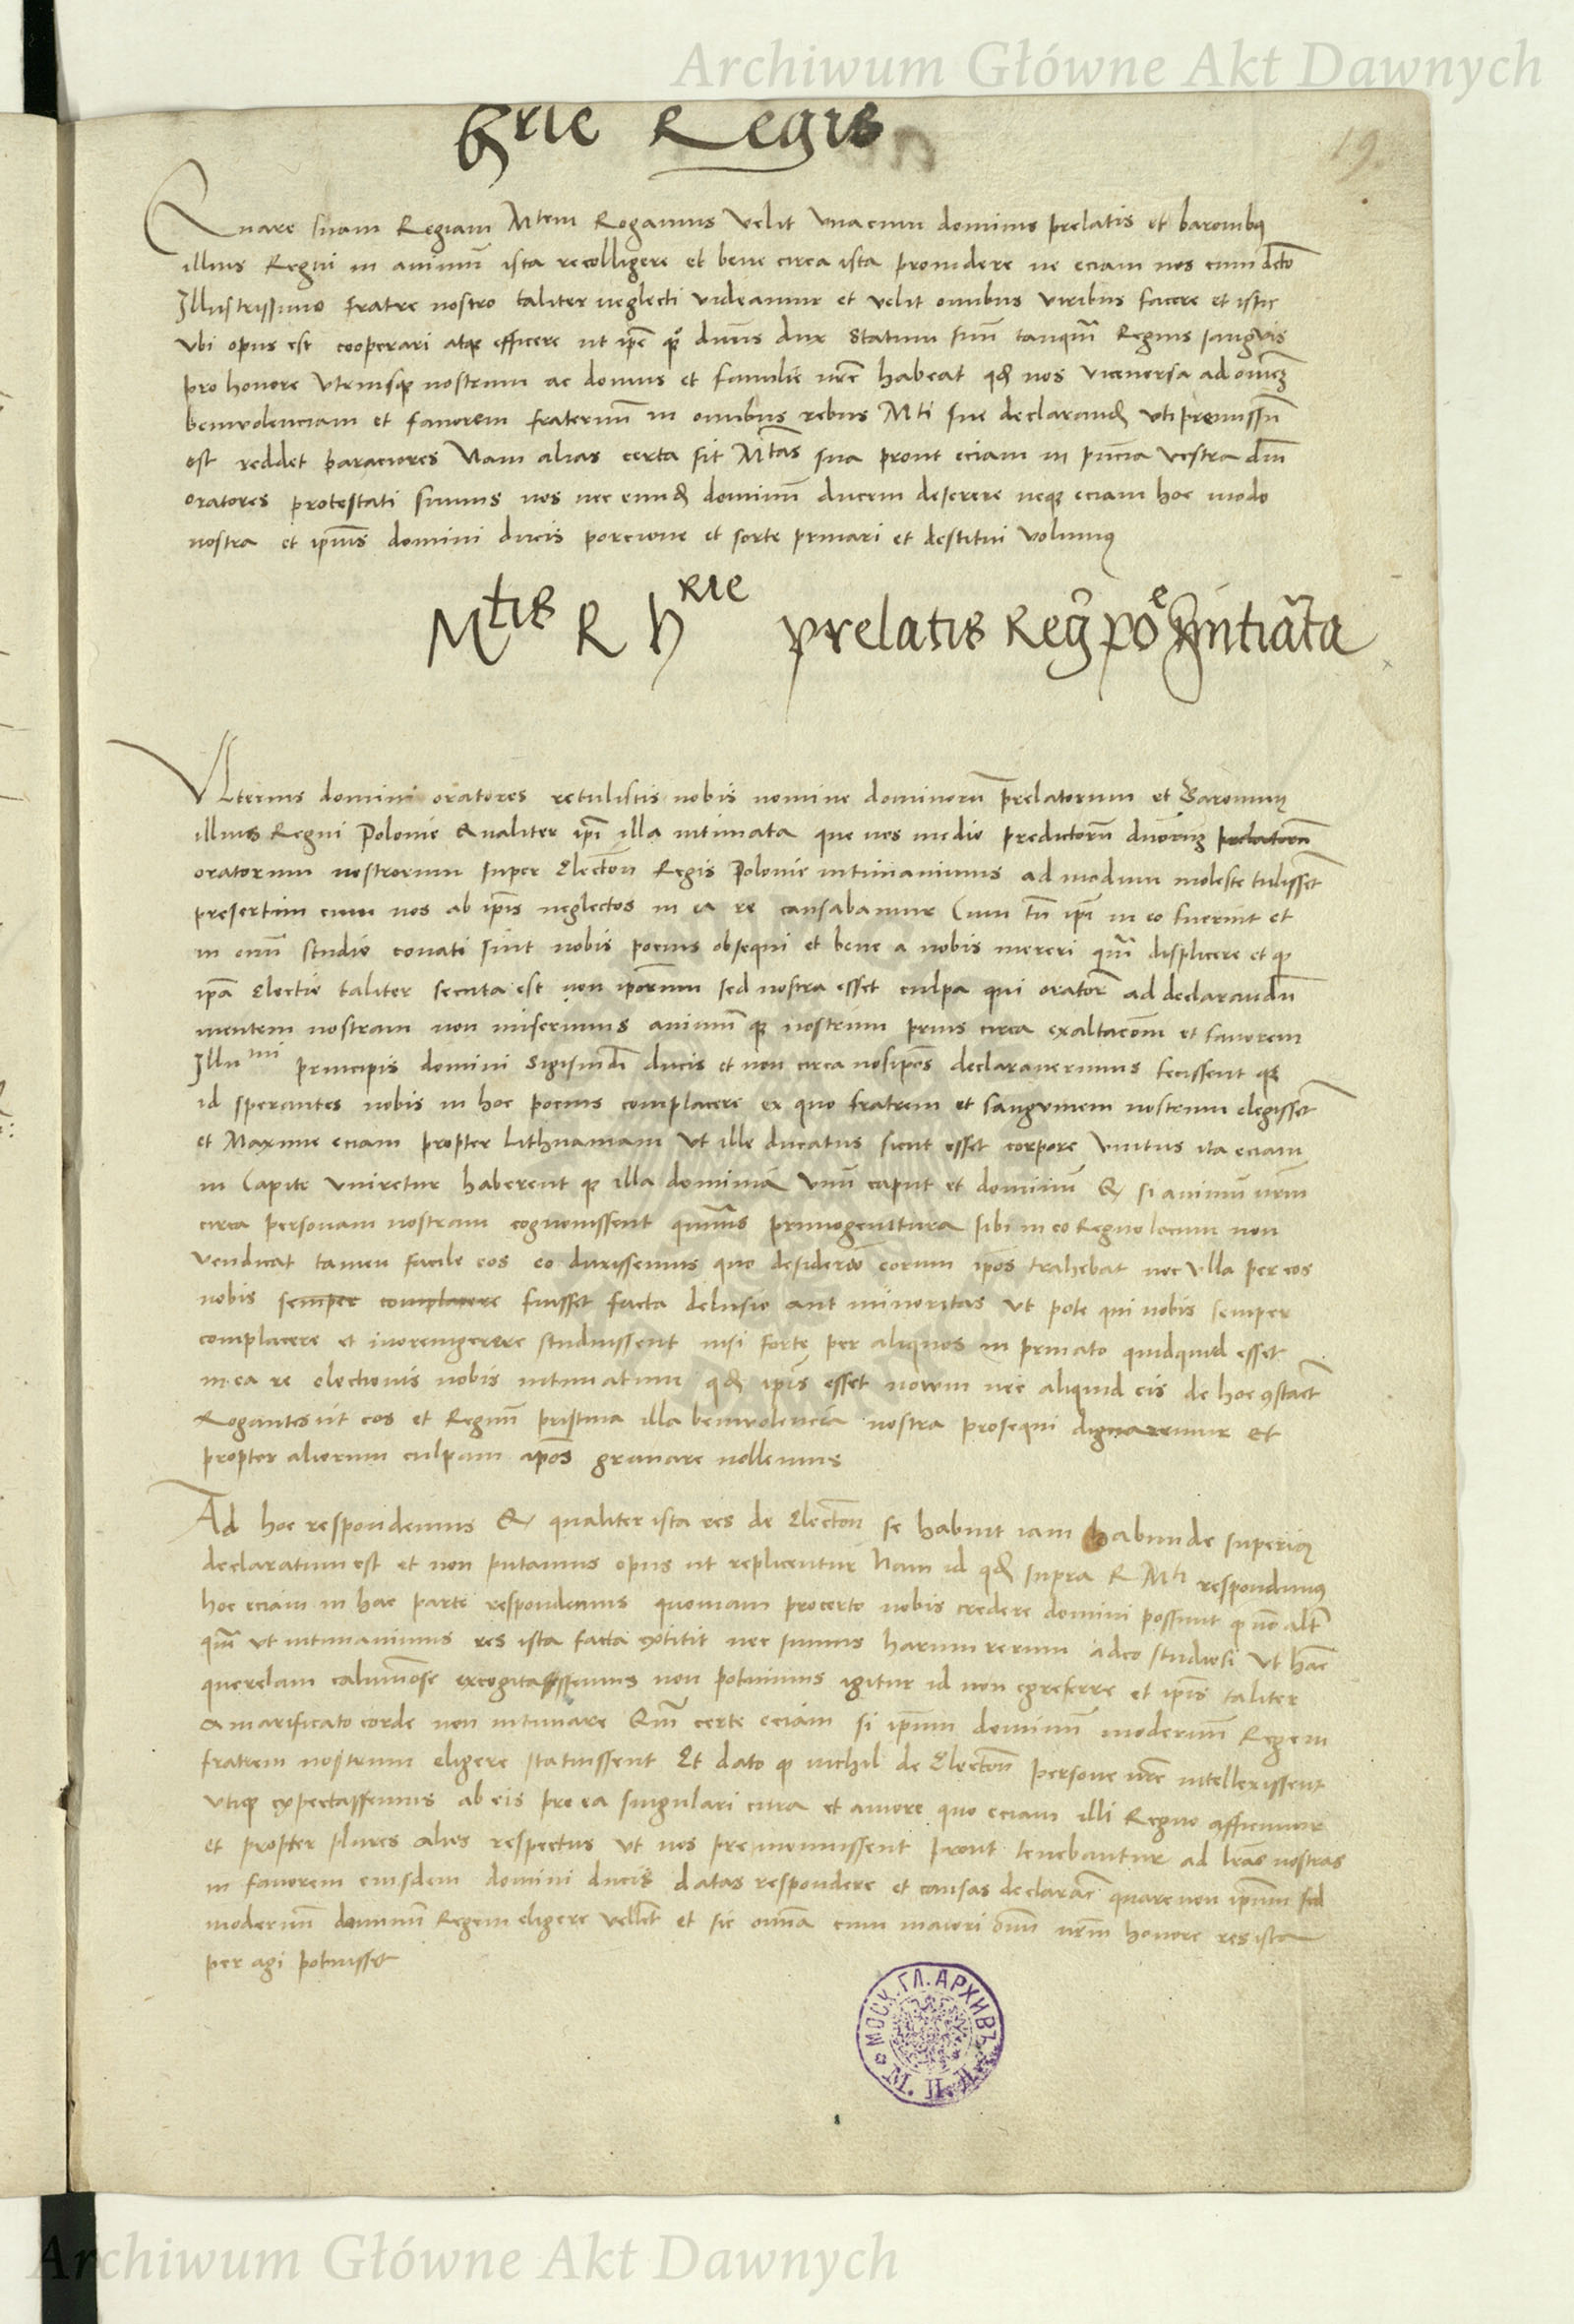 Archiwum Główne Akt Dawnych
hrie Regis
19.
Quare suam Regiam Mtem Rogamus velit unacum dominis prelatis et baronibus
illius Regni in animum ista recolligere et bene circa ista providere ne eciam nos cum dicto
Illustrissimo fratre nostro taliter neglecti videamur et velit omnibus viribus facere et
ubi opus est cooperari atque efficere ut ipse dominus dux Statum suum tanquam Regius sanguis
pro honore utriusque nostrum ac domus et familie nre habeat quod nos viceversa ad omnem
benivolenciam et favorem fraternum in omnibus rebus Mti sue declarandum uti premissum
est reddet paraciores Nam alias certa sit Mtas sua prout eciam in pñcia vestra dñi
oratores protestati sumus nos nec eundem dominum ducem deserere neque eciam hoc modo
nostra et ipsius domini ducis porcione et sorte privari et destitui volumus
Mtis R hrie prelatis Regni poe intimata
Ulterius domini oratores retulistis nobis nomine dominorum prelatorum et Baronum
illius Regni Polonie Qualiter ipsi illa intimata que nos medio predictorum duorum prelatorum
oratorum nostrorum super Election Regis Polonie intimavimus ad modum moleste tulissent
presertim cum nos ab ipsis neglectos in ea re causabamur Cum tñ ipsi in eo fuerint et
in omni studio conati sint nobis pocius obsequi et bene a nobis mereri quam displicere et quod
ipsa Electio taliter secuta est non ipsorum sed nostra esset culpa qui oratorem ad declarandum
mentem nostram non miserimus animum que nostrum prius circa exaltacionem et favorem
Illumi principis domini Sigismdi ducis et non circa nosipsos declaraverimus fecissent que
id sperantes nobis in hoc pocius complacere ex quo fratrem et sangvinem nostrum elegissent
et Maxime eciam propter Lithuaniam ut ille ducatus sicut esset corpore unitus ita eciam
in Capite uniretur haberent que illa dominia unum caput et dominum Et si animum nrm
circa personam nostram cognovissent quamvis primogenitura sibi in eo Regno locum non
vendicat tamen facile eos eo duxissemus quo desiderio eorum ipsos trahebat nec ulla per eos
nobis semper complacere fuisset facta delusio aut minoritas ut pote qui nobis semper
complacere et moremgerere studuissent nisi forte per aliquos in privato quidquid esset
in ea re electionis nobis intimatum quod ipsis esset novum nec aliquid eis de hoc constaret
Rogantes ut eos et Regnum pristina illa benivolencia nostra prosequi dignaremur et
propter aliorum culpam ipsos gravare nollemus
Ad hoc respondemus Et qualiter ista res de Election se habuit iam habunde superius
declaratum est et non putamus opus ut replicentur Nam id quod supra R Mti respondimus
hoc eciam in hac parte respondemus quoniam procerto nobis credere domini possunt quod non aliter
quam ut intimavimus res ista facta extitit nec sumus harum rerum adeo studiosi ut hanc
querelam calumniose excogitassemus non potuimus igitur id non egreferre et ipsis taliter
amarificato corde non intimare Quoniam certe eciam si ipsum dominum modernum Regem
fratrem nostrum eligere statuissent Et dato quod nichil de Election persone nre intellexissent
utique expectassemus ab eis pro ea singulari cura et amore quo eciam illi Regno afficimur
et propter plures alios respectus ut nos premonuissent prout tenebantur ad lras nostras
in favorem eiusdem domini ducis datas respondere et causas declarare quare non ipsum sed
modernum dominum Regem eligere vellent et sic omnia cum maiori omnium nrm honore res ista
per agi potuisset
МОСК. ГЛ. АРХИВЪ М. И. Д.
Archiwum Główne Akt Dawnych